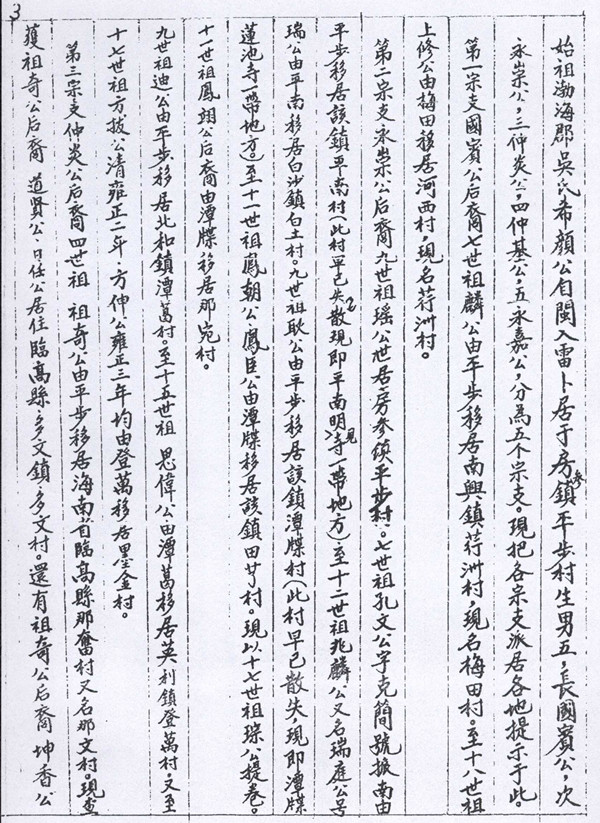 3
始祖渤海郡吳氏希顏公自閩入雷卜居于房參鎮平步村生男五，長國賓公，次
永崇公，三仲炎公，四仲基公，五永嘉公，分為五个宗支。現把各宗支派居各地提示于此。
第一宗支國賓公后裔七世祖麟公由平步移居南興鎮荇洲村，現名梅田村。至十八世祖
上修公由梅田移居河西村，現名荇洲村。
第二宗支永崇公后裔九世祖瑶公世居房參鎮平步村。七世祖孔文公字克簡號振南由
平步移居該鎮平南村（此村早已失散現即平南明寺一帶地方）至十二世祖兆麟公又名瑞庭公号
瑞公由平南移居白沙鎮白土村。九世祖耿公由平步移居該鎮潭牒村（此村早已散失現即潭牒
蓮池寺一帶地方。至十一世祖鳳朝公、鳳臣公由潭牒移居該鎮田艹村。現以十七世祖琛公接卷。
十一世祖鳳翊公后裔由潭牒移居那宛村。
九世祖迪公由平步移居北和鎮潭葛村。至十五世祖 恩偉公由潭葛移居英利鎮登萬村。又至
十七世祖方拔公清雍正二年、方伸公雍正三年均由登萬移居墨金村。
第三宗支仲炎公后裔四世祖 祖奇公由平步移居海南省臨高縣那奮村又名那文村。現查
獲祖奇公后裔 道賢公、日任公居住臨高縣多文鎮多文村。還有祖奇公后裔 坤香公